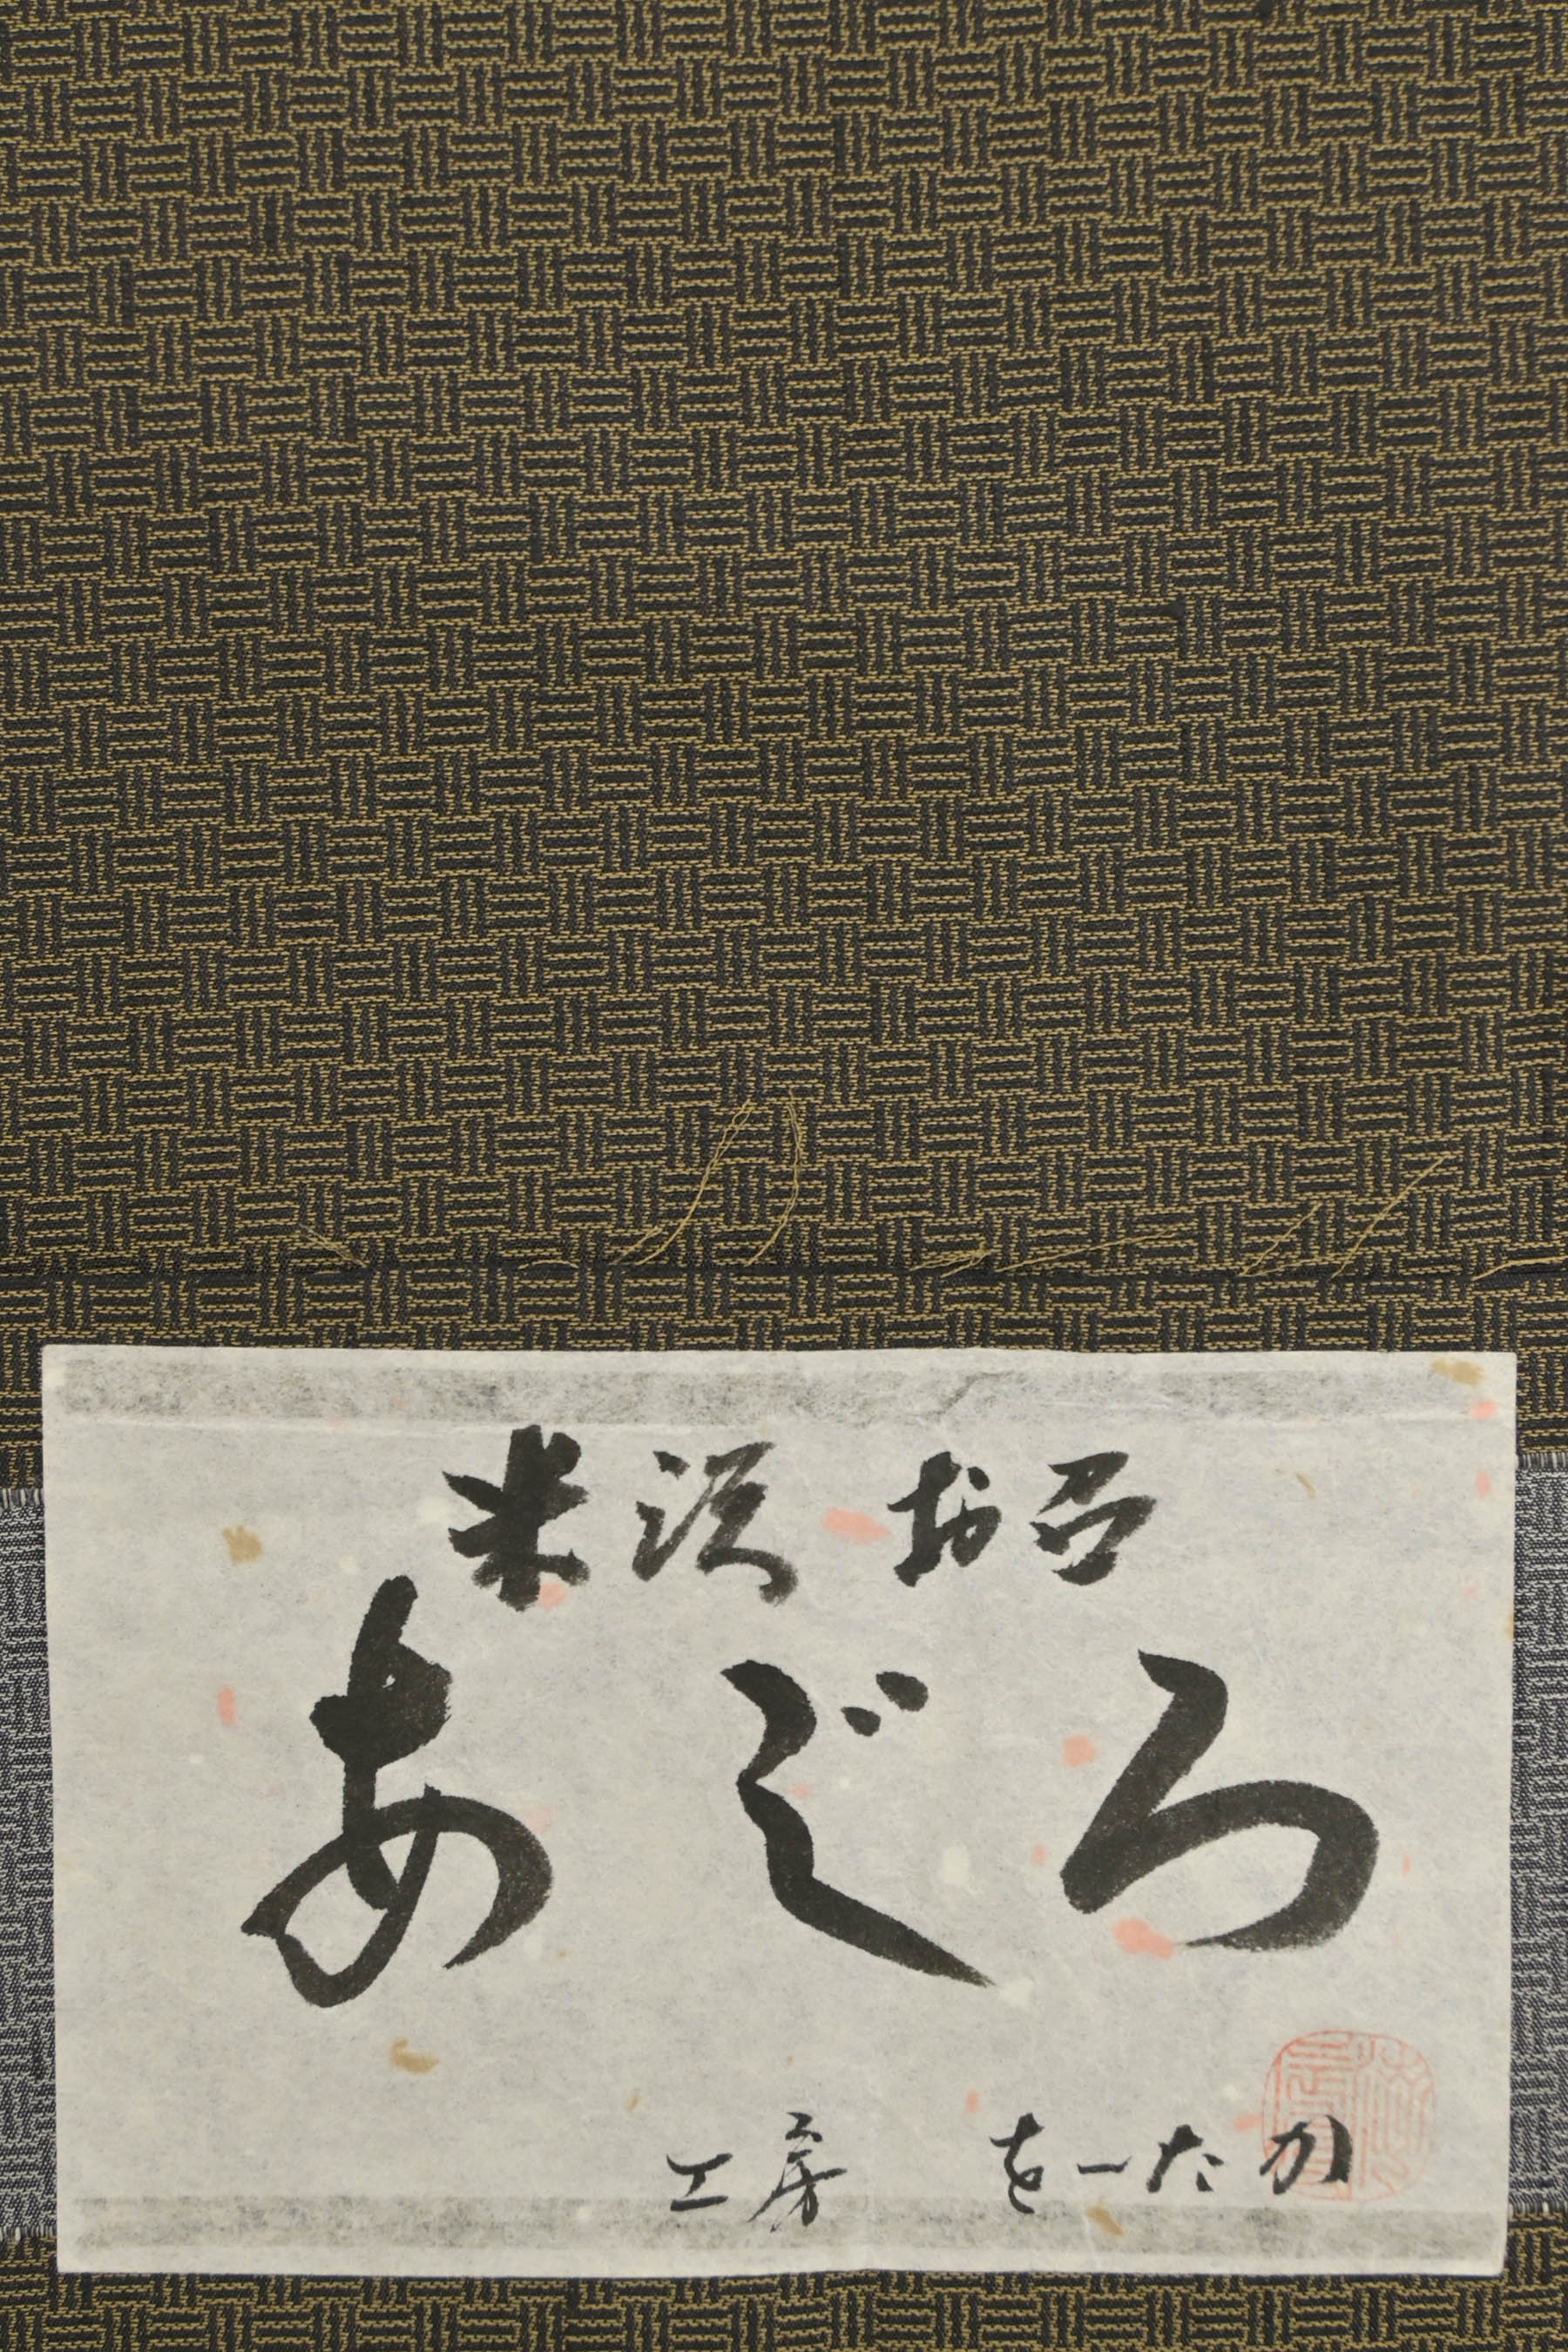 米沢 お召
あじろ
工房 を一たか